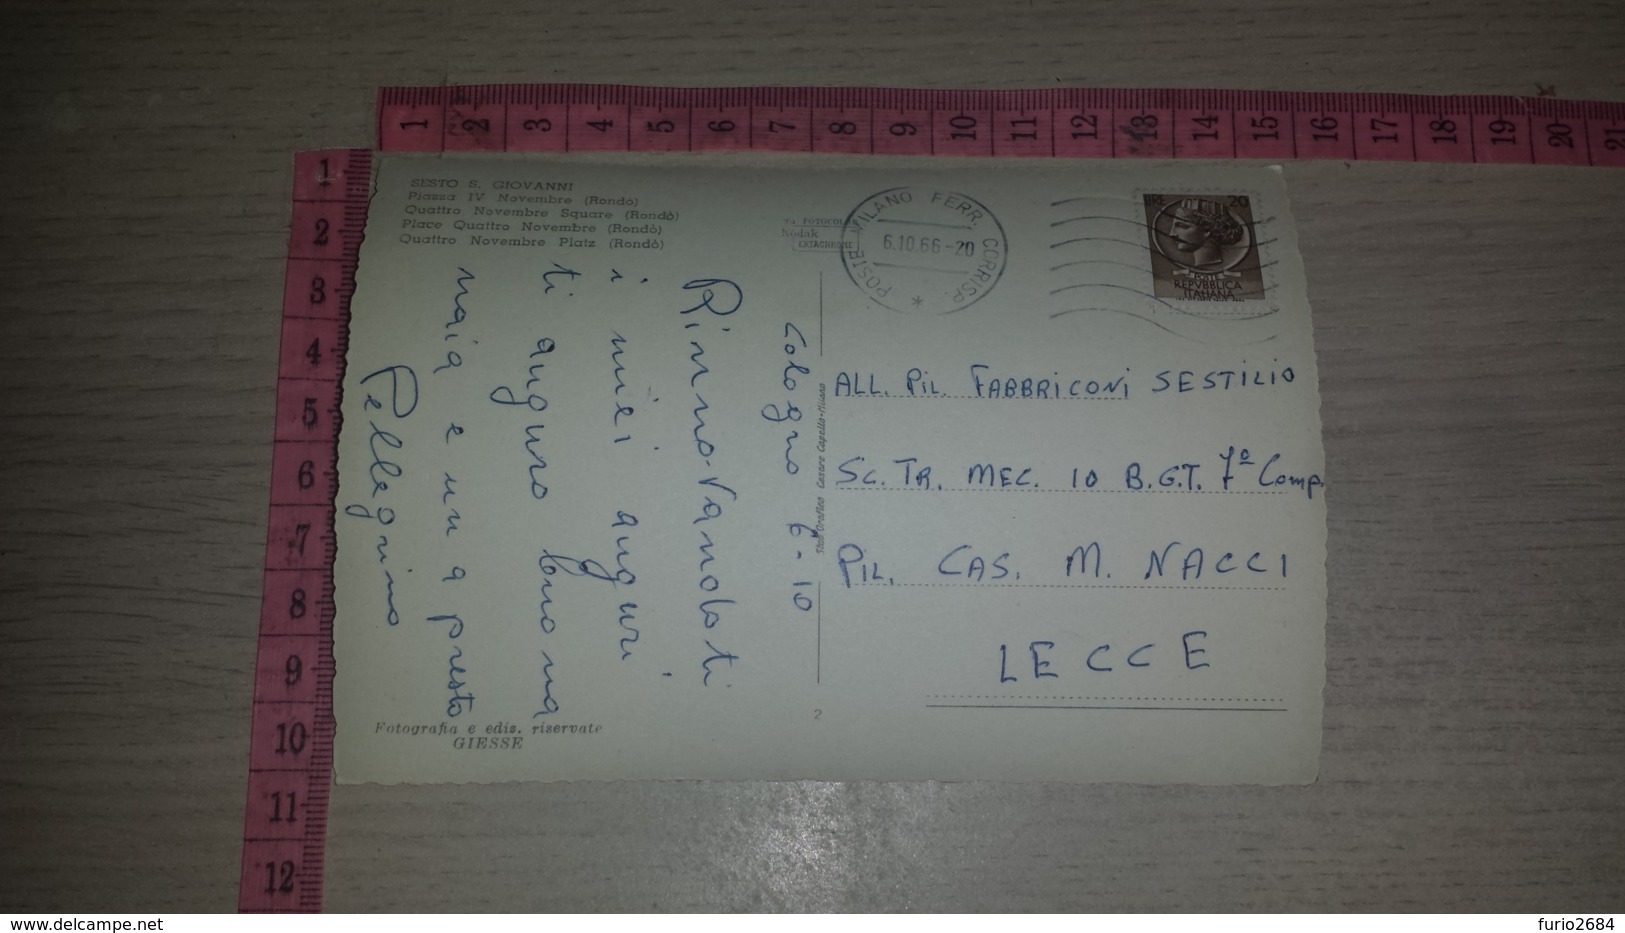 1 2 3 4 5 6 7 8 9 10 11 12 13 14 15 16 17 18 19 20 21
1
2
3
4
5
6
7
8
9
10
11
12
SESTO S. GIOVANNI
Piazza IV Novembre (Rondò)
Quattro Novembre Square (Rondò)
Place Quattro Novembre (Rondò)
Quattro Novembre Platz (Rondò)
FOTOCOL
Kodak
EKTACHROME
POSTE MILANO FERR. CORRISP. *
6.10.66-20
LIRE 20
POSTE
REPVBBLICA
ITALIANA
Cologno 6-10
Rinno-vandoti
i miei auguri
ti auguro buona
naia e un a presto
Pellegrino
Stab. Grafico Cesare Capello-Milano
ALL. PIL. FABBRICONI SESTILIO
SC. TR. MEC. 10 B.G.T. 7ª Comp.
PIL. CAS. M. NACCI
LECCE
2
Fotografia e ediz. riservate
GIESSE
delcampe.net
furio2684